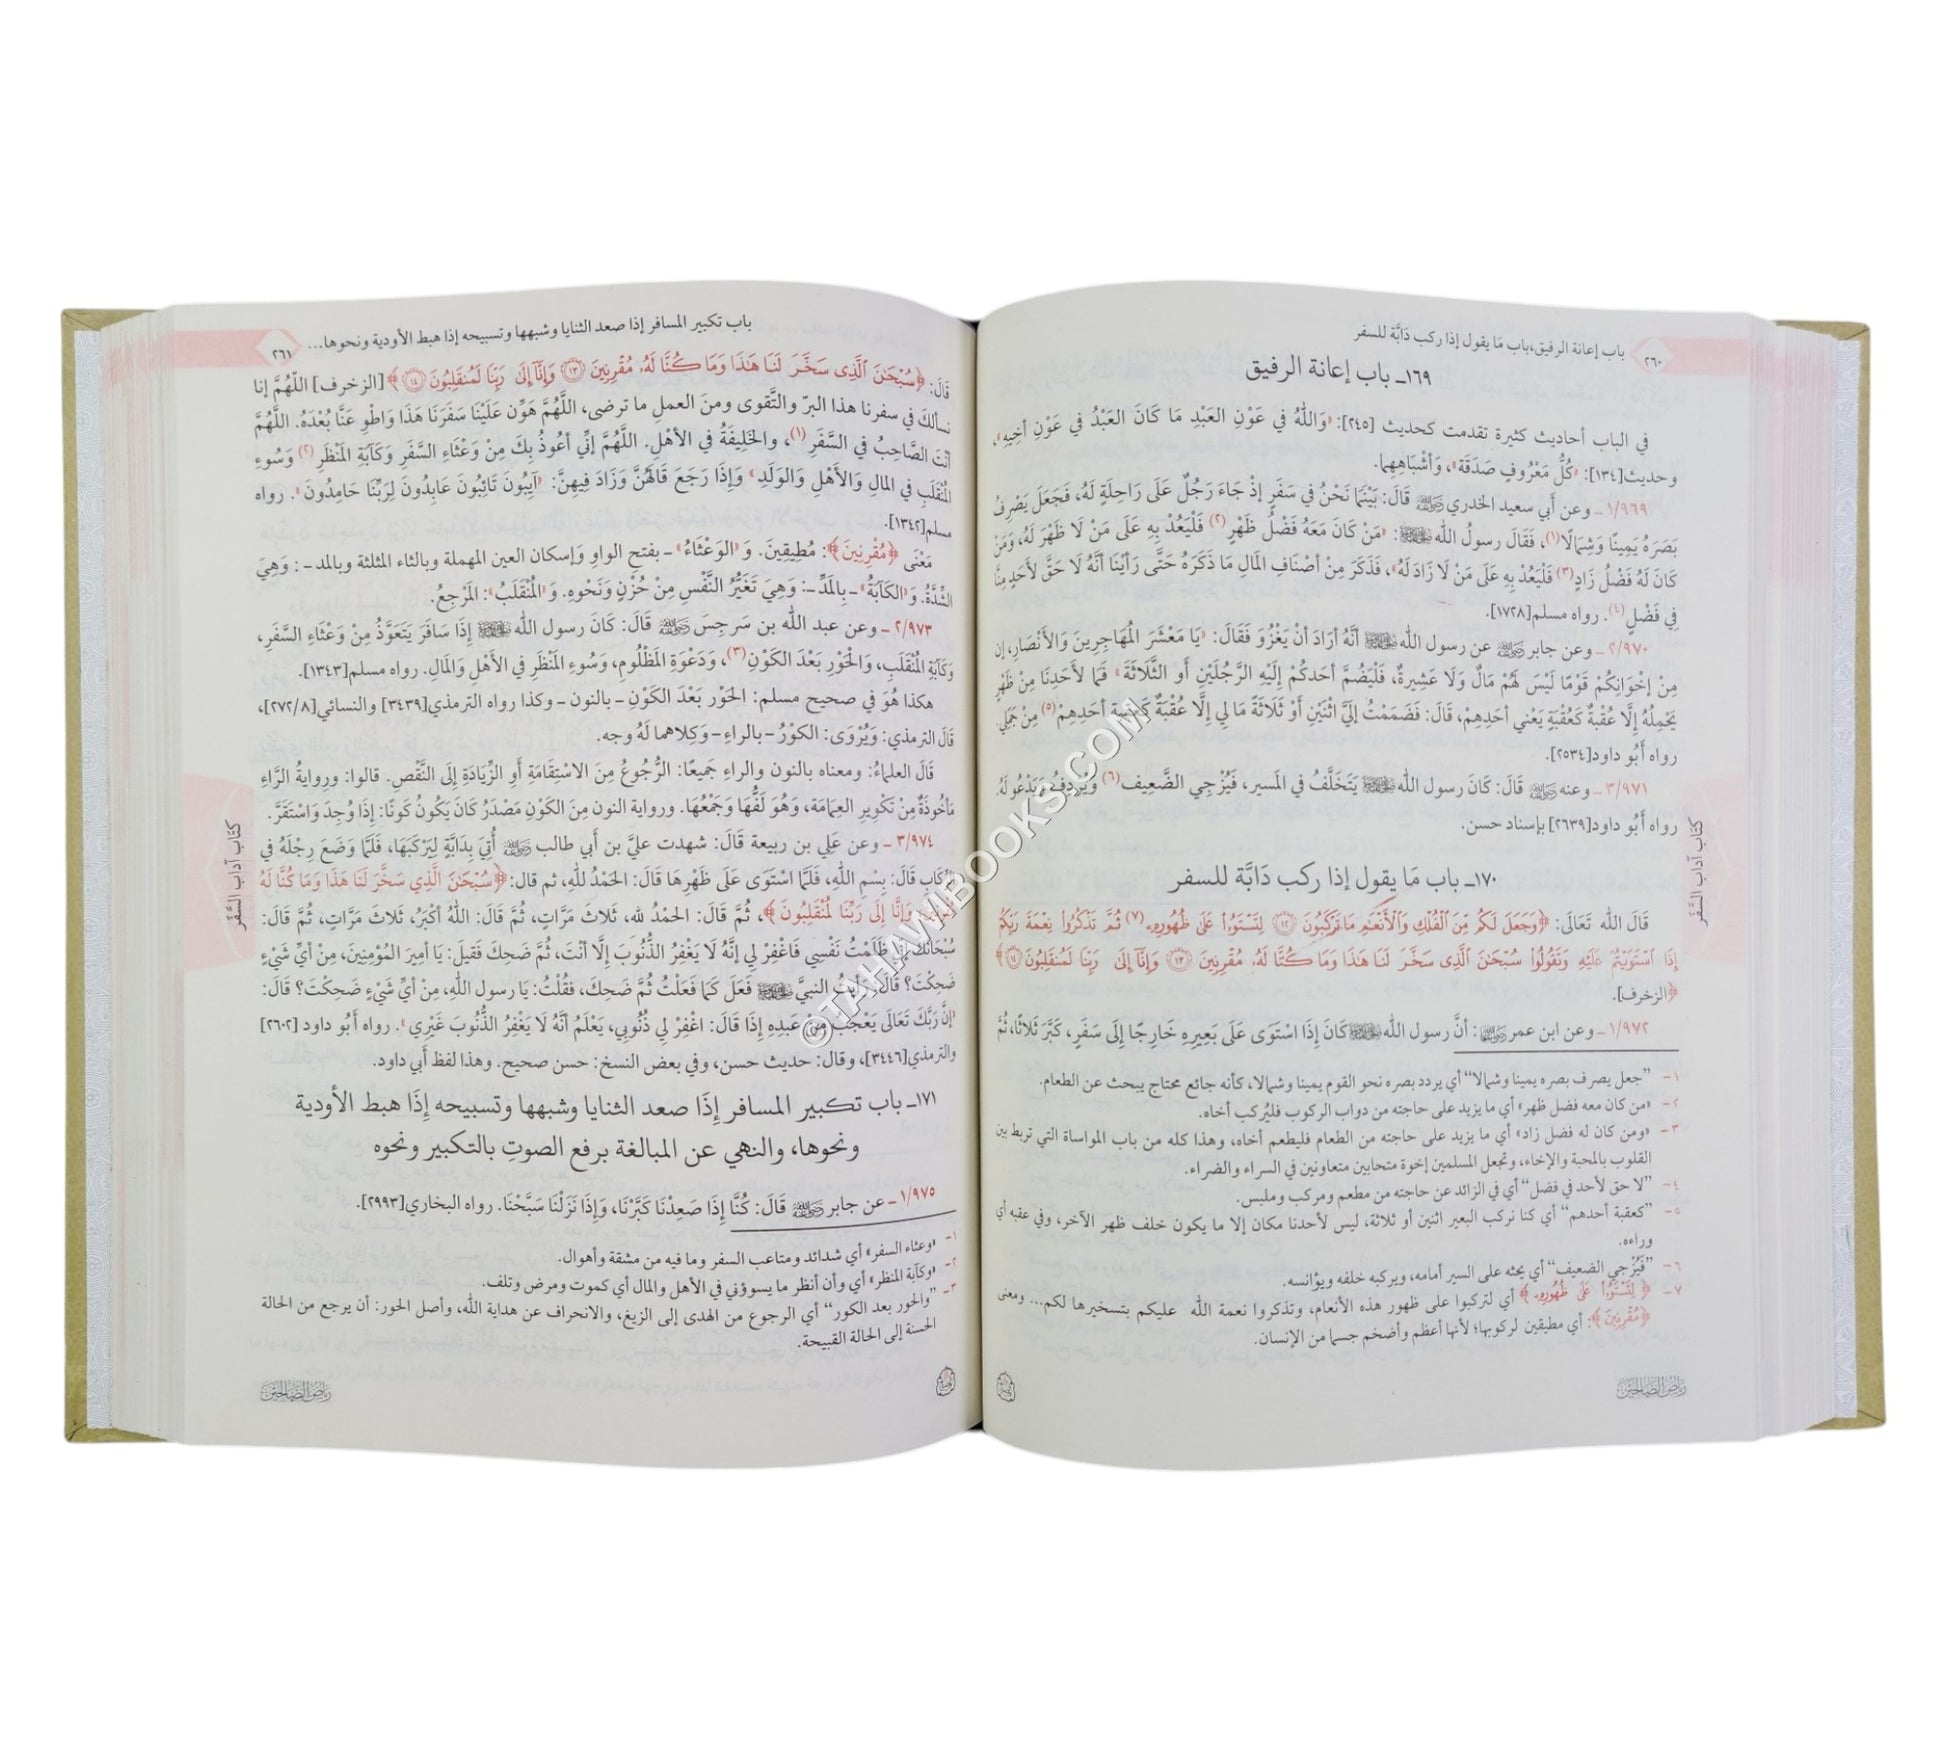 باب إعانة الرفيق،باب مَا يقول إذا ركب دَابَّة للسفر
٢٦٠
١٦٩ـ باب إعانة الرفيق
في الباب أحاديث كثيرة تقدمت كحديث [٢٤٥]: «وَاللهُ في عَوْنِ العَبْدِ مَا كَانَ العَبْدُ في عَوْنِ أخِيهِ»،
وحديث[١٣٤]: «كُلُّ مَعْرُوفٍ صَدَقَة»، وَأشْبَاهِهِما.
١/٩٦٩ ـ وعن أَبي سعيد الخدري ﵁ قَالَ: بَيْنَمَا نَحْنُ في سَفَرٍ إذْ جَاءَ رَجُلٌ عَلَى رَاحِلَةٍ لَهُ، فَجَعَلَ يَصْرِفُ
بَصَرَهُ يَمِينًا وَشِمَالًا(١)، فَقَالَ رسولُ الله ﷺ: «مَنْ كَانَ مَعَهُ فَضْلُ ظَهْرٍ(٢) فَلْيَعُدْ بِهِ عَلَى مَنْ لَا ظَهْرَ لَهُ، وَمَنْ
كَانَ لَهُ فَضْلُ زَادٍ(٣) فَلْيَعُدْ بِهِ عَلَى مَنْ لَا زَادَ لَهُ»، فَذَكَرَ مِنْ أصْنَافِ المَالِ مَا ذَكَرَهُ حَتَّى رَأيْنَا أنَّهُ لَا حَقَّ لأَحَدٍ مِنَّا
فِي فَضْلٍ(٤). رواه مسلم[١٧٢٨].
٢/٩٧٠ ـ وعن جابر ﵁ عن رسول الله ﷺ أنَّهُ أرَادَ أنْ يَغْزُوَ فَقَالَ: «يَا مَعْشَرَ المُهَاجِرِينَ وَالأنْصَارِ، إن
مِنْ إخْوَانِكُمْ قَوْمًا لَيْسَ لَهُمْ مَالٌ وَلَا عَشِيرةٌ، فَلْيَضُمَّ أحَدكُمْ إلَيْهِ الرَّجُلَيْنِ أَو الثَّلَاثَةَ» فَمَا لأَحَدِنَا مِنْ ظَهْرٍ
يَحْمِلُهُ إلَّا عُقْبَةٌ كَعُقْبَةٍ يَعْني أحَدِهِمْ، قَالَ: فَضَمَمْتُ إلَيَّ اثْنَيْنِ أَوْ ثَلَاثَةً مَا لِي إلَّا عُقْبَةٌ كَعقبة أحَدِهِمْ(٥) مِنْ جَمَلي.
رواه أَبُو داود[٢٥٣٤].
٣/٩٧١ ـ وعنه ﵁ قَالَ: كَانَ رسول الله ﷺ يَتَخَلَّفُ في المَسير، فَيُزْجِي الضَّعِيف(٦) وَيُرْدِفُ وَيَدْعُو لَهُ.
رواه أَبُو داود[٢٦٣٩] بإسناد حسن.
١٧٠ـ باب مَا يقول إذا ركب دَابَّة للسفر
قَالَ الله تَعَالَى: ﴿وَجَعَلَ لَكُم مِّنَ ٱلْفُلْكِ وَٱلْأَنْعَٰمِ مَا تَرْكَبُونَ ۝١٢ لِتَسْتَوُۥاْ عَلَىٰ ظُهُورِهِۦ(٧) ثُمَّ تَذْكُرُواْ نِعْمَةَ رَبِّكُمْ
إِذَا ٱسْتَوَيْتُمْ عَلَيْهِ وَتَقُولُواْ سُبْحَٰنَ ٱلَّذِى سَخَّرَ لَنَا هَٰذَا وَمَا كُنَّا لَهُۥ مُقْرِنِينَ ۝١٣ وَإِنَّآ إِلَىٰ رَبِّنَا لَمُنقَلِبُونَ ۝١٤﴾
[الزخرف].
١/٩٧٢ ـ وعن ابن عمر ﵄: أنَّ رسول الله ﷺ كَانَ إِذَا اسْتَوَى عَلَى بَعِيرِهِ خَارِجًا إِلَى سَفَرٍ، كَبَّرَ ثَلاثًا، ثُمَّ
١- "جعل يصرف بصره يمينا وشمالا" أي يردد بصره نحو القوم يمينا وشمالا، كأنه جائع محتاج يبحث عن الطعام.
٢- «من كان معه فضل ظهر» أي ما يزيد على حاجته من دواب الركوب فليُركب أخاه.
٣- «ومن كان له فضل زاد» أي ما يزيد على حاجته من الطعام فليطعم أخاه، وهذا كله من باب المواساة التي تربط بين
القلوب بالمحبة والإخاء، وتجعل المسلمين إخوة متحابين متعاونين في السراء والضراء.
٤- "لا حق لأحد في فضل" أي في الزائد عن حاجته من مطعم ومركب وملبس.
٥- "كعقبة أحدهم" أي كنا نركب البعير اثنين أو ثلاثة، ليس لأحدنا مكان إلا ما يكون خلف ظهر الآخر، وفي عقبه أي
وراءه.
٦- "فَيُزْجي الضعيف" أي يحثه على السير أمامه، ويركبه خلفه ويؤانسه.
٧- ﴿لِتَسْتَوُۥاْ عَلَىٰ ظُهُورِهِۦ﴾ أي لتركبوا على ظهور هذه الأنعام، وتذكروا نعمة الله عليكم بتسخيرها لكم... ومعنى
﴿مُقْرِنِينَ﴾: أي مطيقين لركوبها؛ لأنها أعظم وأضخم جسما من الإنسان.
كتاب آداب السَّفَر
رياض الصالحين
باب تكبير المسافر إذا صعد الثنايا وشبهها وتسبيحه إذا هبط الأودية ونحوها...
٢٦١
قَالَ: ﴿سُبْحَٰنَ ٱلَّذِى سَخَّرَ لَنَا هَٰذَا وَمَا كُنَّا لَهُۥ مُقْرِنِينَ ۝١٣ وَإِنَّآ إِلَىٰ رَبِّنَا لَمُنقَلِبُونَ ۝١٤﴾ [الزخرف] اللّهُمَّ إنا
نسألكَ في سفرنا هذا البرّ والتَّقوى ومنَ العملِ ما ترضى، اللَّهُمَّ هَوِّن عَلَيْنَا سَفَرَنَا هَذَا وَاطْوِ عَنَّا بُعْدَهُ. اللَّهُمَّ
أنْتَ الصَّاحِبُ في السَّفَرِ(١)، والخَلِيفَةُ في الأهْلِ. اللَّهُمَّ إنِّي أعُوذُ بِكَ مِنْ وَعْثَاءِ السَّفَرِ وَكَآبَةِ المَنْظَرِ(٢) وَسُوءِ
المُنْقَلَبِ في المالِ وَالأَهْلِ وَالوَلَدِ» وَإِذَا رَجَعَ قَالَهُنَّ وَزَادَ فِيهِنَّ: «آيِبُونَ تَائِبُونَ عَابِدُونَ لِرَبِّنَا حَامِدُونَ». رواه
مسلم[١٣٤٢].
مَعْنَى ﴿مُقْرِنِينَ﴾: مُطِيقِينَ. وَ«الوَعْثَاءُ» ـ بفتحِ الواوِ وَإسكان العين المهملة وبالثاء المثلثة وبالمد ـ: وَهِيَ
الشِّدَّةُ. وَ«الكَآبَةُ» ـ بِالمَدِّ ـ: وَهِيَ تَغَيُّرُ النَّفْسِ مِنْ حُزْنٍ وَنَحْوِهِ. وَ«المُنْقَلَبُ»: المَرْجِعُ.
٢/٩٧٣ ـ وعن عبد الله بن سَرجِسَ ﵁ قَالَ: كَانَ رسول الله ﷺ إِذَا سَافَرَ يَتَعَوَّذُ مِنْ وَعْثَاءِ السَّفَرِ،
وَكَآبَةِ المُنْقَلَبِ، وَالْحَوْرِ بَعْدَ الكَوْنِ(٣)، وَدَعْوَةِ المَظْلُومِ، وَسُوءِ المَنْظَرِ في الأَهْلِ وَالمَالِ. رواه مسلم[١٣٤٣].
هكذا هُوَ في صحيح مسلم: الحَوْر بَعْدَ الكَوْنِ – بالنون – وكذا رواه الترمذي[٣٤٣٩] والنسائي[٢٧٢/٨]،
قَالَ الترمذي: وَيُرْوَى: الكوْرُ – بالراءِ – وَكِلاهما لَهُ وجه.
قَالَ العلماءُ: ومعناه بالنون والراءِ جَميعًا: الرُّجُوعُ مِنَ الاسْتِقَامَةِ أَوِ الزِّيَادَةِ إِلَى النَّقْصِ. قالوا: وروايةُ الرَّاءِ
مَأخُوذَةٌ مِنْ تَكْوِيرِ العِمَامَة، وَهُوَ لَفُّهَا وَجَمْعُهَا. ورواية النون مِنَ الكَوْنِ مَصْدَرُ كَانَ يَكُونُ كَونًا: إِذَا وُجِدَ وَاسْتَقَرَّ.
٣/٩٧٤ ـ وعن عَلِي بن ربيعة قَالَ: شهدت عليَّ بن أَبي طالب ﵁ أُتِيَ بِدَابَّةٍ لِيَرْكَبَهَا، فَلَمَّا وَضَعَ رِجْلَهُ في
الرِّكَابِ قَالَ: بِسْمِ اللهِ، فَلَمَّا اسْتَوَى عَلَى ظَهْرِهَا قَالَ: الحَمْدُ للهِ، ثم قال: ﴿سُبْحَانَ الَّذِي سَخَّرَ لَنَا هَذَا وَمَا كُنَّا لَهُ
وَإنَّا إِلَى رَبِّنَا لَمُنْقَلِبُونَ﴾، ثُمَّ قَالَ: الحمْدُ لله، ثَلاثَ مَرَّاتٍ، ثُمَّ قَالَ: اللهُ أكْبَرُ، ثَلاثَ مَرَّاتٍ، ثُمَّ قَالَ:
سُبْحَانَكَ إنِّي ظَلَمْتُ نَفْسِي فَاغْفِرْ لِي إنَّهُ لَا يَغْفِرُ الذُّنُوبَ إِلَّا أنْتَ، ثُمَّ ضَحِكَ فَقيلَ: يَا أمِيرَ المُؤْمِنِينَ، مِنْ أيِّ شَيْءٍ
ضَحِكْتَ؟ قَالَ: رَأيتُ النبيَّ ﷺ فَعَلَ كَمَا فَعَلْتُ ثُمَّ ضَحِكَ، فقُلْتُ: يَا رسول اللهِ، مِنْ أيِّ شَيْءٍ ضَحِكْتَ؟ قَالَ:
«إنَّ رَبَّكَ تَعَالَى يَعْجَبُ مِنْ عَبدِهِ إِذَا قَالَ: اغْفِرْ لِي ذُنُوبِي، يَعْلَمُ أنَّهُ لَا يَغْفِرُ الذُّنُوبَ غَيْرِي». رواه أَبُو داود [٢٦٠٢]
والترمذي[٣٤٤٦]، وقال: حديث حسن، وفي بعض النسخ: حسن صحيح. وهذا لفظ أَبي داود.
١٧١ـ باب تكبير المسافر إِذَا صعد الثنايا وشبهها وتسبيحه إِذَا هبط الأودية
ونحوها، والنهي عن المبالغة برفع الصوتِ بالتكبير ونحوه
١/٩٧٥ ـ عن جابر ﵁ قَالَ: كُنَّا إِذَا صَعِدْنَا كَبَّرْنَا، وَإِذَا نَزَلْنَا سَبَّحْنَا. رواه البخاري[٢٩٩٣].
١- «وعثاء السفر» أي شدائد ومتاعب السفر وما فيه من مشقة وأهوال.
٢- «وكآبة المنظر» أي وأن أنظر ما يسوؤني في الأهل والمال أي كموت ومرض وتلف.
٣- "والحور بعد الكور" أي الرجوع من الهدى إلى الزيغ، والانحراف عن هداية الله، وأصل الحور: أن يرجع من الحالة
الحسنة إلى الحالة القبيحة.
كتاب آداب السَّفَر
رياض الصالحين
©TAHAVIBOOKS.COM